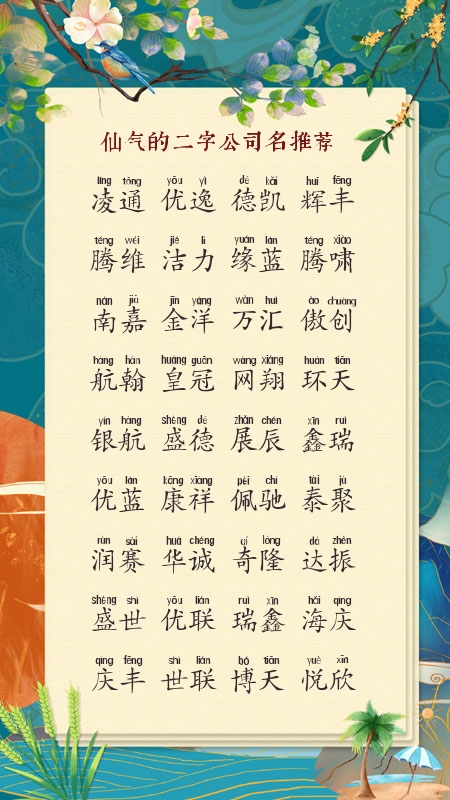 仙气的二字公司名推荐
líng tōng yōu yì dé kǎi huī fēng
凌通 优逸 德凯 辉丰
téng wéi jié lì yuán lán téng xiào
腾维 洁力 缘蓝 腾啸
nán jiā jīn yáng wàn huì ào chuàng
南嘉 金洋 万汇 傲创
háng hàn huáng guān wǎng xiáng huán tiān
航翰 皇冠 网翔 环天
yín háng shèng dé zhǎn chén xīn ruì
银航 盛德 展辰 鑫瑞
yōu lán kāng xiáng pèi chí tài jù
优蓝 康祥 佩驰 泰聚
rùn sài huá chéng qí lóng dá zhèn
润赛 华诚 奇隆 达振
shèng shì yōu lián ruì xīn hǎi qìng
盛世 优联 瑞鑫 海庆
qìng fēng shì lián bó tiān yuè xīn
庆丰 世联 博天 悦欣